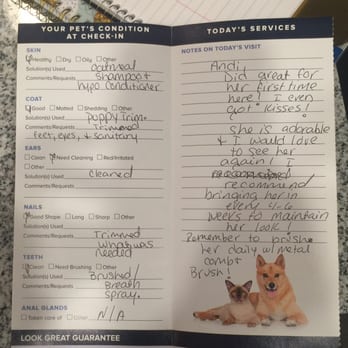 YOUR PET'S CONDITION
AT CHECK-IN
SKIN
Healthy Dry Oily Other
Solution(s) Used oatmeal
Comments/Requests shampoo +
hypo conditioner
COAT
Good Matted Shedding Other
Solution(s) Used Puppy Trim.
Comments/Requests Trimmed
feet, eyes, & sanitary
EARS
Clean Need Cleaning Red/Irritated
Other
Solution(s) Used cleaned
Comments/Requests
NAILS
Good Shape Long Sharp Other
Comments/Requests Trimmed
what was
needed
TEETH
Clean Need Brushing Other
Solution(s) Used Brushed/
Comments/Requests Breath
spray.
ANAL GLANDS
Taken care of Other N/A
LOOK GREAT GUARANTEE
TODAY'S SERVICES
NOTES ON TODAY'S VISIT
Andi,
Did great for
her first time
here! I even
got "Kisses!
she is adorable
& I would love
to see her
again! I
recommund
bringing her in
every 4-6
weeks to maintain
her look!
Remember to brush
her daily w/ metal
comb +
Brush!